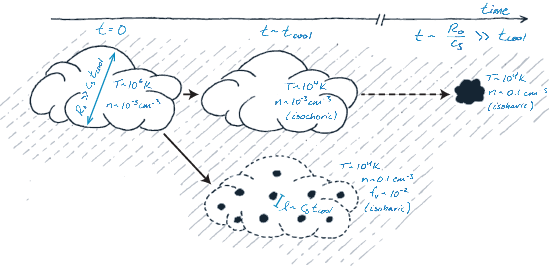 time
t = 0
t ~ t_cool
t ~ R_0/c_s ≫ t_cool
R_0 ≫ c_s t_cool
T ~ 10^6 K
n ~ 10^-3 cm^-3
T ~ 10^4 K
n ~ 10^-3 cm^-3
(isochoric)
T ~ 10^4 K
n ~ 0.1 cm^-3
(isobaric)
T ~ 10^4 K
n ~ 0.1 cm^-3
f_v ~ 10^-2
(isobaric)
l ~ c_s t_cool